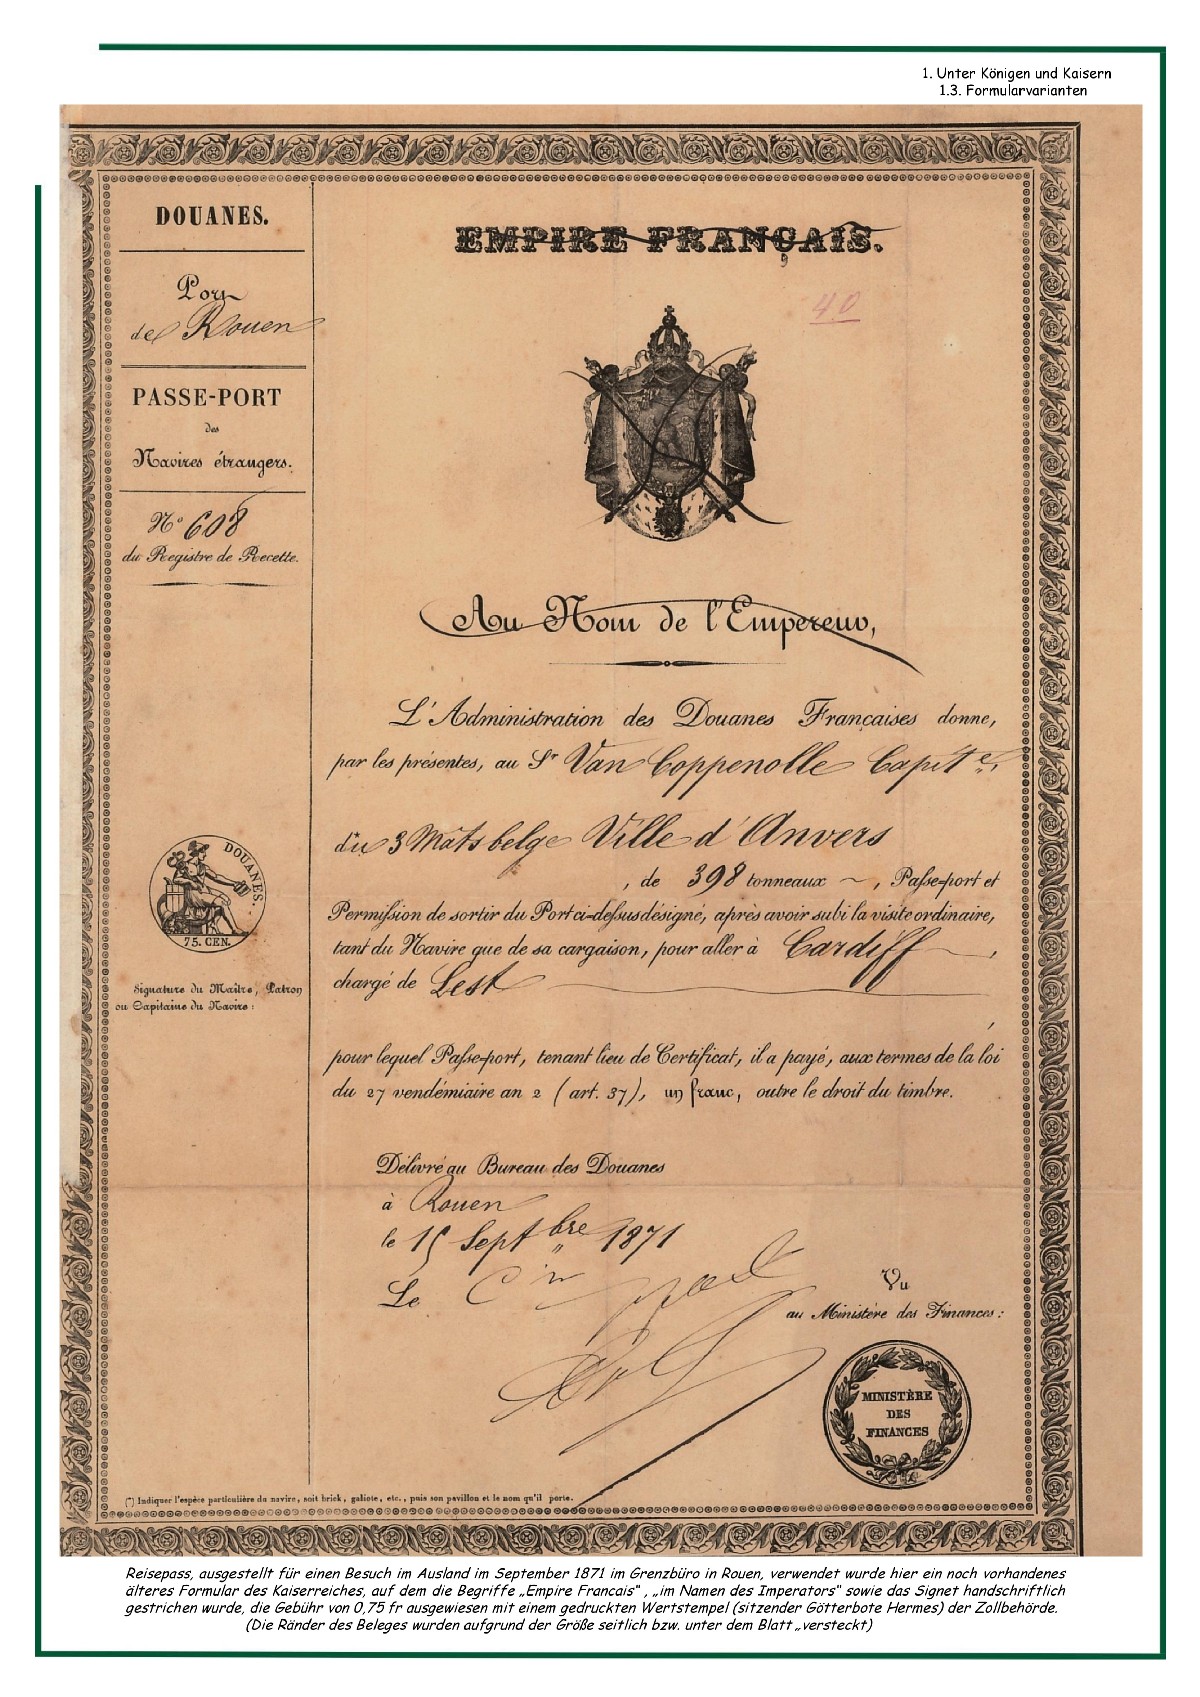 1. Unter Königen und Kaisern
1.3. Formularvarianten
DOUANES.
Port
de Rouen
PASSE-PORT
des
Navires étrangers.
N° 608
du Registre de Recette.
DOUANES.
75. CEN.
Signature du Maître, Patron
ou Capitaine du Navire:
EMPIRE FRANÇAIS.
40
Au Nom de l'Empereur,
L'Administration des Douanes Françaises donne,
par les présentes, au Sr Van Coppenolle Capit e,
du 3 Mâts belge Ville d'Anvers
, de 398 tonneaux ~, Passe-port et
Permission de sortir du Port ci-dessus désigné, après avoir subi la visite ordinaire,
tant du Navire que de sa cargaison, pour aller à Cardiff,
chargé de Lest
pour lequel Passe-port, tenant lieu de Certificat, il a payé, aux termes de la loi
du 27 vendémiaire an 2 (art. 37), un franc, outre le droit du timbre.
Délivré au Bureau des Douanes
à Rouen
le 15 Septbre 1871
Le
Vu
au Ministère des Finances:
MINISTÈRE
DES
FINANCES
(*) Indiquer l'espèce particulière du navire, soit brick, galiote, etc., puis son pavillon et le nom qu'il porte.
Reisepass, ausgestellt für einen Besuch im Ausland im September 1871 im Grenzbüro in Rouen, verwendet wurde hier ein noch vorhandenes
älteres Formular des Kaiserreiches, auf dem die Begriffe „Empire Francais" , „im Namen des Imperators" sowie das Signet handschriftlich
gestrichen wurde, die Gebühr von 0,75 fr ausgewiesen mit einem gedruckten Wertstempel (sitzender Götterbote Hermes) der Zollbehörde.
(Die Ränder des Beleges wurden aufgrund der Größe seitlich bzw. unter dem Blatt „versteckt)